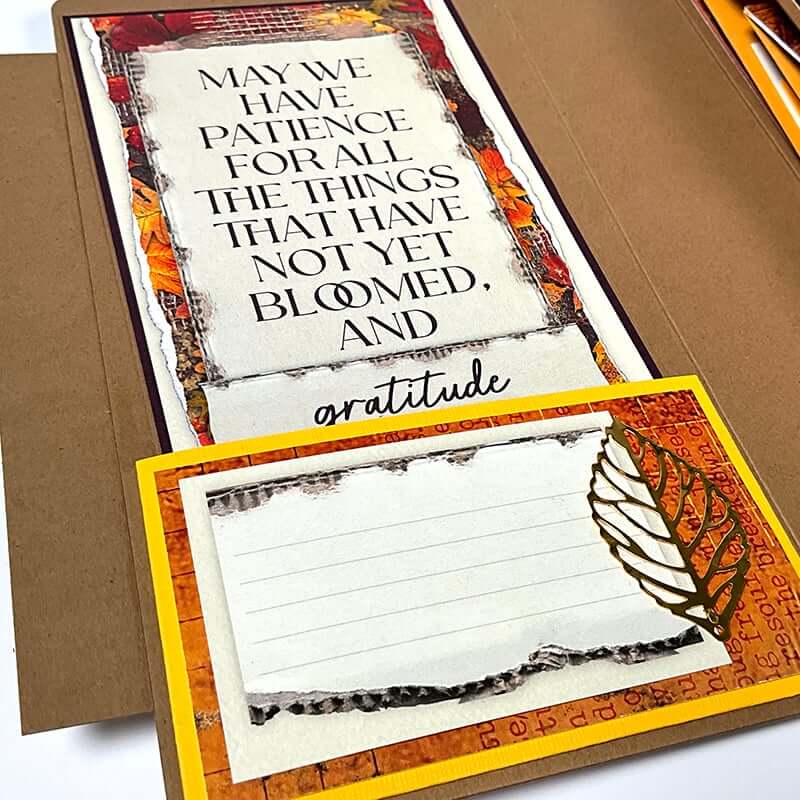 MAY WE
HAVE
PATIENCE
FOR ALL
THE THINGS
THAT HAVE
NOT YET
BLOOMED,
AND
gratitude